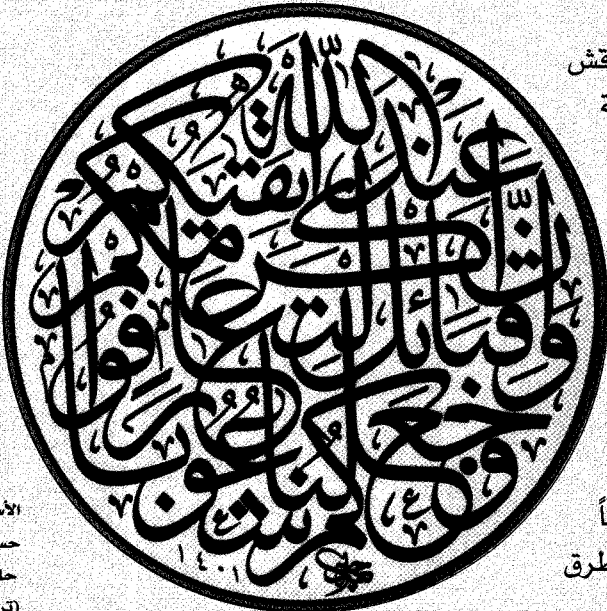 وَجَعَلْنٰكُمْ شُعُوبًا
وَقَبَائِلَ لِتَعَارَفُوا
اِنَّ اَكْرَمَكُمْ
عِنْدَ اللّٰهِ اَتْقٰيكُمْ
١٤٠١
طرق